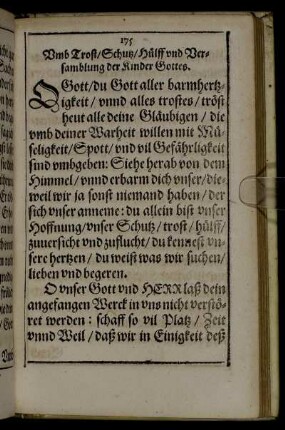 175
Vmb Trost/Schutz/Hülff vnd Ver-
samblung der Kinder Gottes.
O Gott/du Gott aller barmhertz-
igkeit / vnnd alles trostes / tröst
heut alle deine Gläubigen / die
vmb deiner Warheit willen mit Mü-
seligkeit/Spott/vnd vil Gefährligkeit
sind vmbgeben: Siehe herab von dem
Himmel/vnnd erbarm dich vnser/die-
weil wir ja sonst niemand haben/der
sich vnser anneme: du allein bist vnser
Hoffnung/vnser Schutz/trost/hülff/
zuuersicht vnd zuflucht/du kennest vn-
sere hertzen/du weist was wir suchen/
lieben vnd begeren.
O vnser Gott vnd HERR laß dein
angefangen Werck in vns nicht verstö-
ret werden : schaff so vil Platz / Zeit
vnnd Weil/daß wir in Einigkeit deß